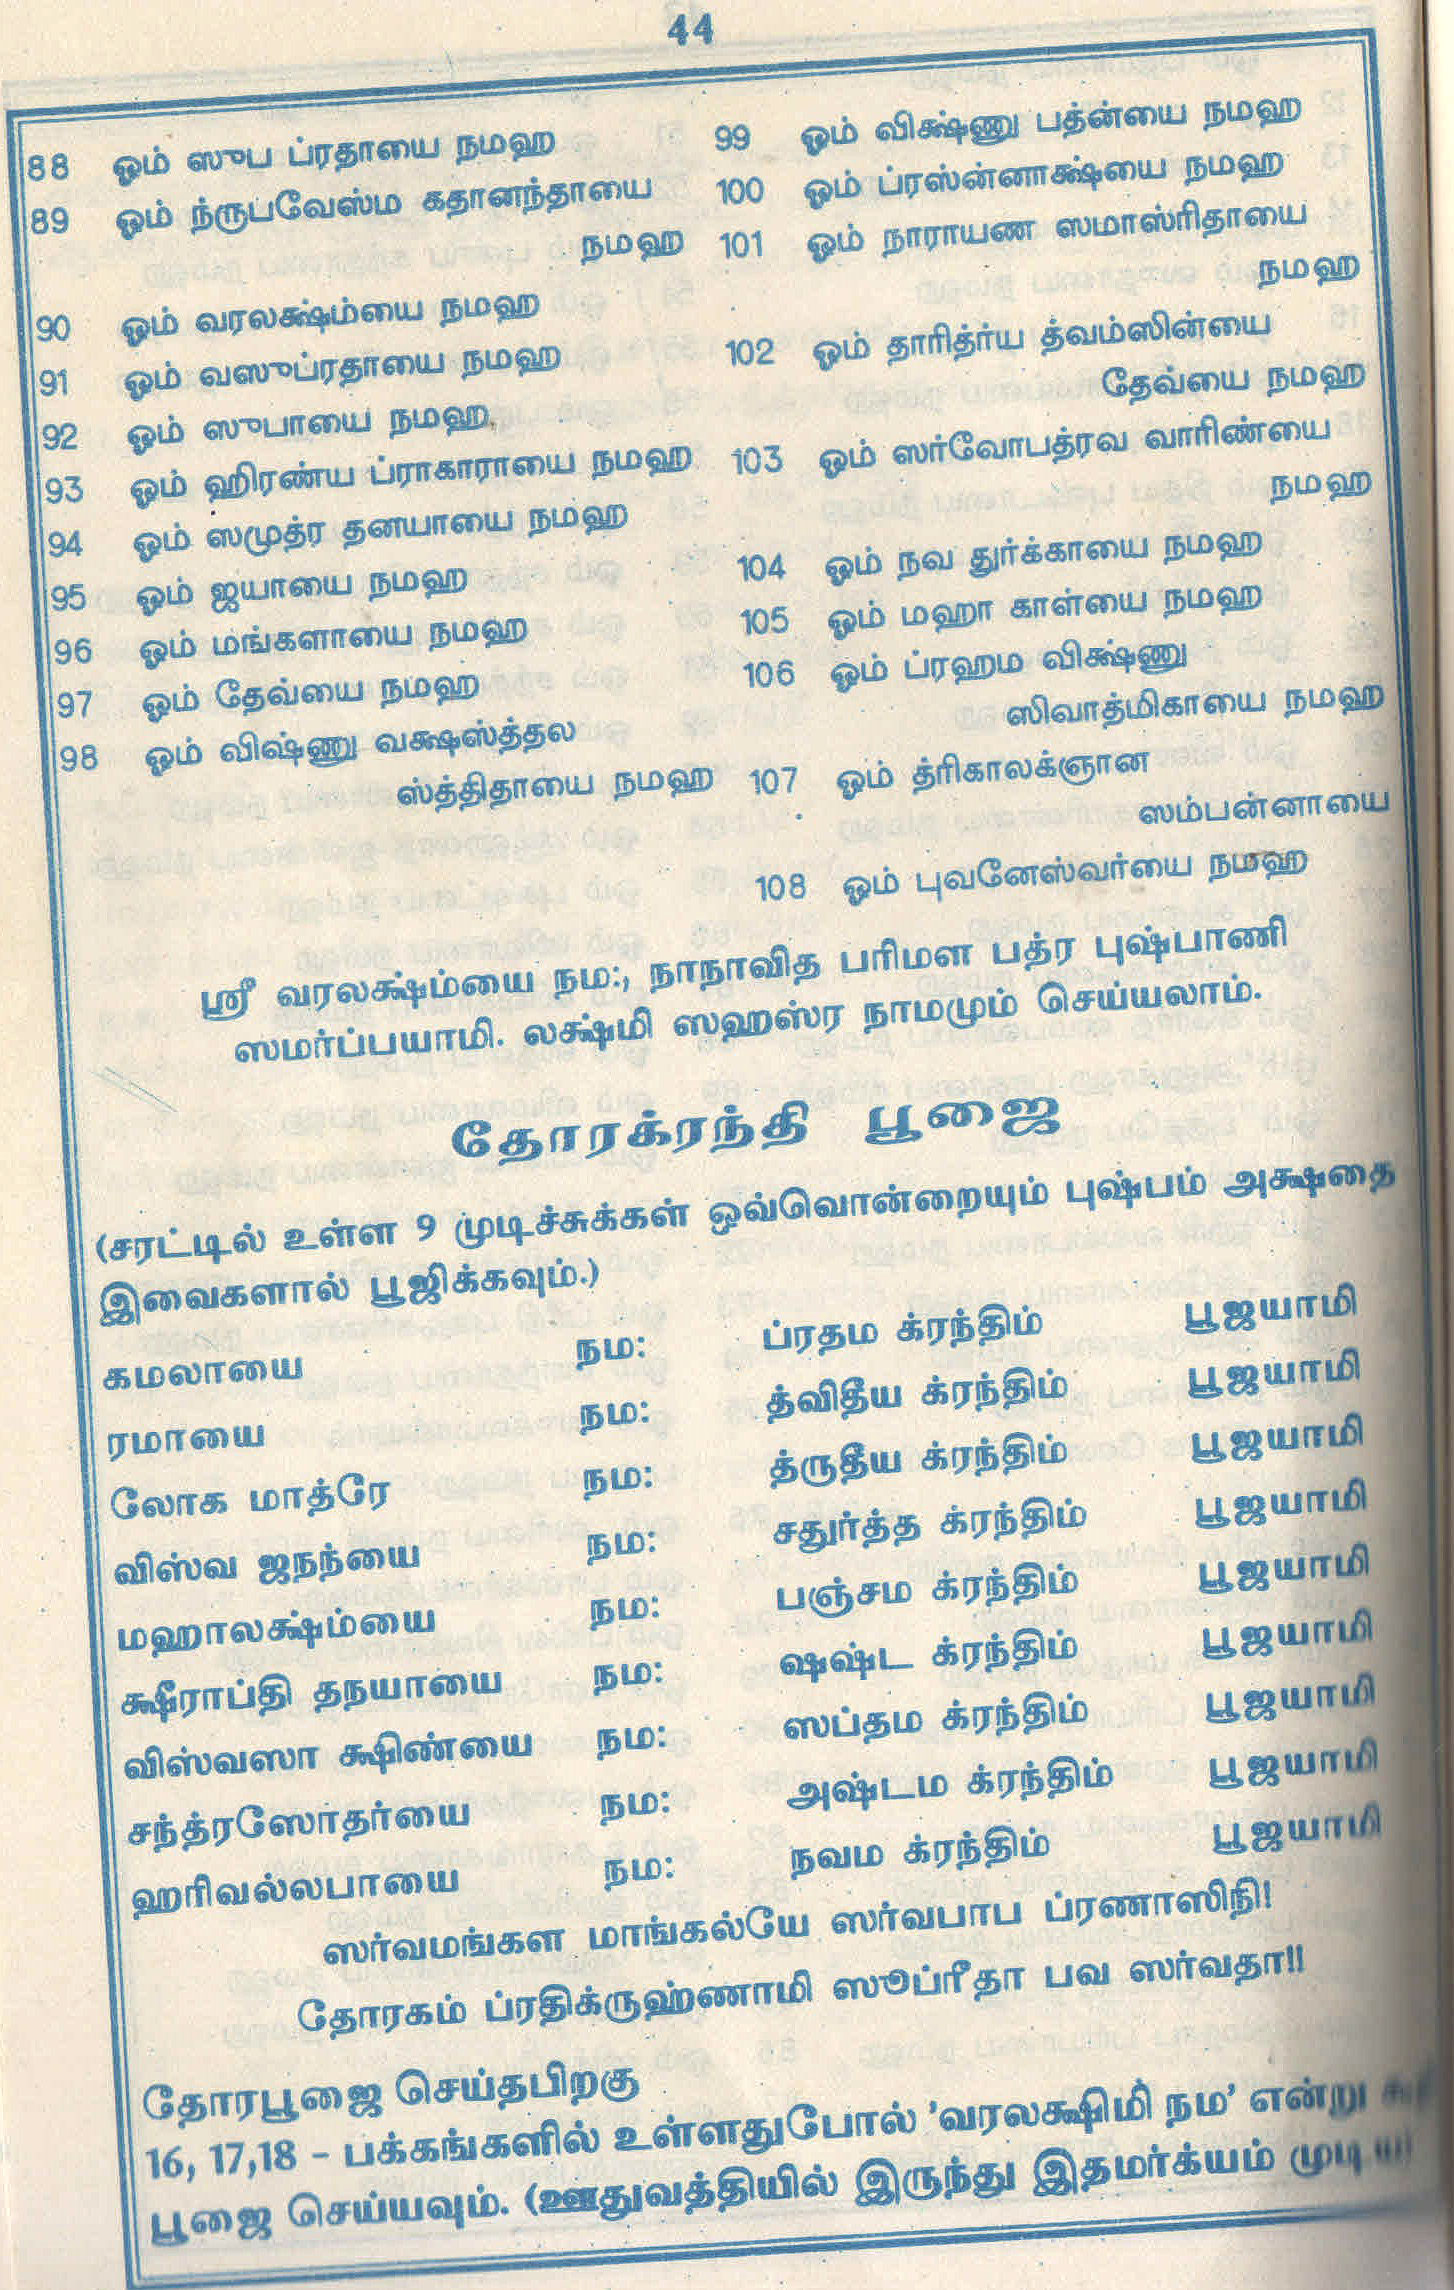 44
88 ஓம் ஸுப ப்ரதாயை நமஹ
89 ஓம் ந்ருபவேஸ்ம கதானந்தாயை
நமஹ
90 ஓம் வரலக்ஷ்ம்யை நமஹ
91 ஓம் வஸுப்ரதாயை நமஹ
92 ஓம் ஸுபாயை நமஹ
93 ஓம் ஹிரண்ய ப்ராகாராயை நமஹ
94 ஓம் ஸமுத்ர தனயாயை நமஹ
95 ஓம் ஜயாயை நமஹ
96 ஓம் மங்களாயை நமஹ
97 ஓம் தேவ்யை நமஹ
98 ஓம் விஷ்ணு வக்ஷஸ்த்தல
ஸ்த்திதாயை நமஹ
99 ஓம் விக்ஷ்ணு பத்ன்யை நமஹ
100 ஓம் ப்ரஸ்ன்னாக்ஷ்யை நமஹ
101 ஓம் நாராயண ஸமாஸ்ரிதாயை
நமஹ
102 ஓம் தாரித்ர்ய த்வம்ஸின்யை
தேவ்யை நமஹ
103 ஓம் ஸர்வோபத்ரவ வாரிண்யை
நமஹ
104 ஓம் நவ துர்க்காயை நமஹ
105 ஓம் மஹா காள்யை நமஹ
106 ஓம் ப்ரஹம விக்ஷ்ணு
ஸிவாத்மிகாயை நமஹ
107 ஓம் த்ரிகாலக்ஞான
ஸம்பன்னாயை
108 ஓம் புவனேஸ்வர்யை நமஹ
ஸ்ரீ வரலக்ஷ்ம்யை நம:, நாநாவித பரிமள பத்ர புஷ்பாணி
ஸமர்ப்பயாமி. லக்ஷ்மி ஸஹஸ்ர நாமமும் செய்யலாம்.
தோரக்ரந்தி பூஜை
(சரட்டில் உள்ள 9 முடிச்சுக்கள் ஒவ்வொன்றையும் புஷ்பம் அக்ஷதை
இவைகளால் பூஜிக்கவும்.)
கமலாயை நம: ப்ரதம க்ரந்திம் பூஜயாமி
ரமாயை நம: த்விதீய க்ரந்திம் பூஜயாமி
லோக மாத்ரே நம: த்ருதீய க்ரந்திம் பூஜயாமி
விஸ்வ ஜநந்யை நம: சதுர்த்த க்ரந்திம் பூஜயாமி
மஹாலக்ஷ்ம்யை நம: பஞ்சம க்ரந்திம் பூஜயாமி
க்ஷீராப்தி தநயாயை நம: ஷஷ்ட க்ரந்திம் பூஜயாமி
விஸ்வஸா க்ஷிண்யை நம: ஸப்தம க்ரந்திம் பூஜயாமி
சந்த்ரஸோதர்யை நம: அஷ்டம க்ரந்திம் பூஜயாமி
ஹரிவல்லபாயை நம: நவம க்ரந்திம் பூஜயாமி
ஸர்வமங்கள மாங்கல்யே ஸர்வபாப ப்ரணாஸிநி!
தோரகம் ப்ரதிக்ருஹ்ணாமி ஸூப்ரீதா பவ ஸர்வதா!!
தோரபூஜை செய்தபிறகு
16, 17,18 - பக்கங்களில் உள்ளதுபோல் 'வரலக்ஷிமி நம' என்று
பூஜை செய்யவும். (ஊதுவத்தியில் இருந்து இதமர்க்யம்